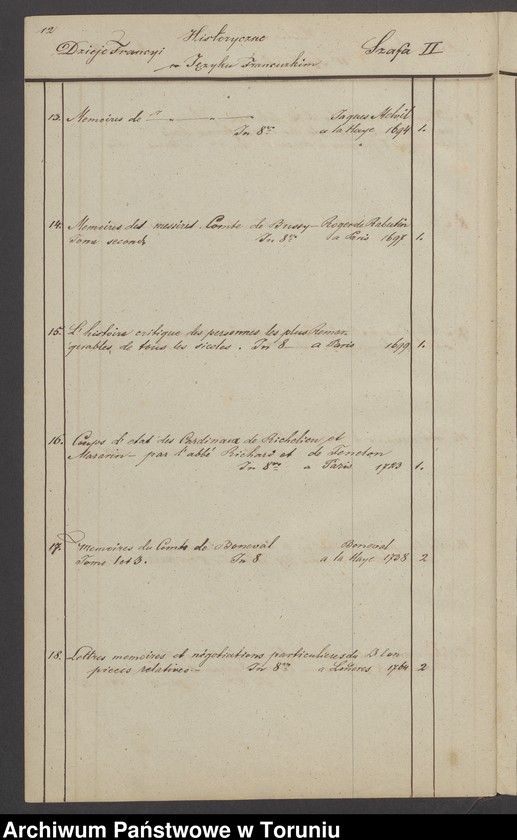 12
Historyczne
Dzieje Francyi Szafa II
w Języku Francuzkim
13. Memoires de Jaques Melvil
In 8vo a la Haye 1694 1.
14. Memoires des messires Comte de Bussy - Roger de Rabutin
Tome second In 8vo a Paris 1697 1.
15. L'histoire critique des personnes les plus Remar
quables, de tous les siecles. In 8 a Paris 1699 1.
16. Coups d'etat des Cardinaux de Richelieu et
Mazarin par l'abbé Richard et de
In 8vo a Paris 1723 1.
17. Memoires du Comte de Boneval Boneval
Tome 1 et 3. In 8 a la Haye 1738 2
18. Lettres memoires et négotiations particulieres de D'Eon
pieces relatives In 8vo a Londres 1764 2
Archiwum Państwowe w Toruniu